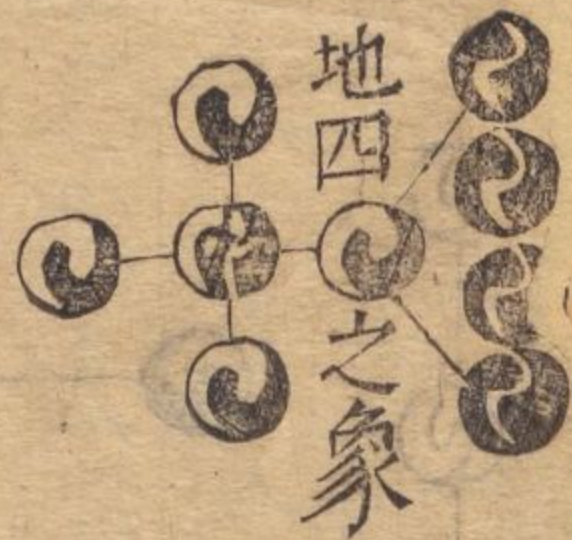 地四之象